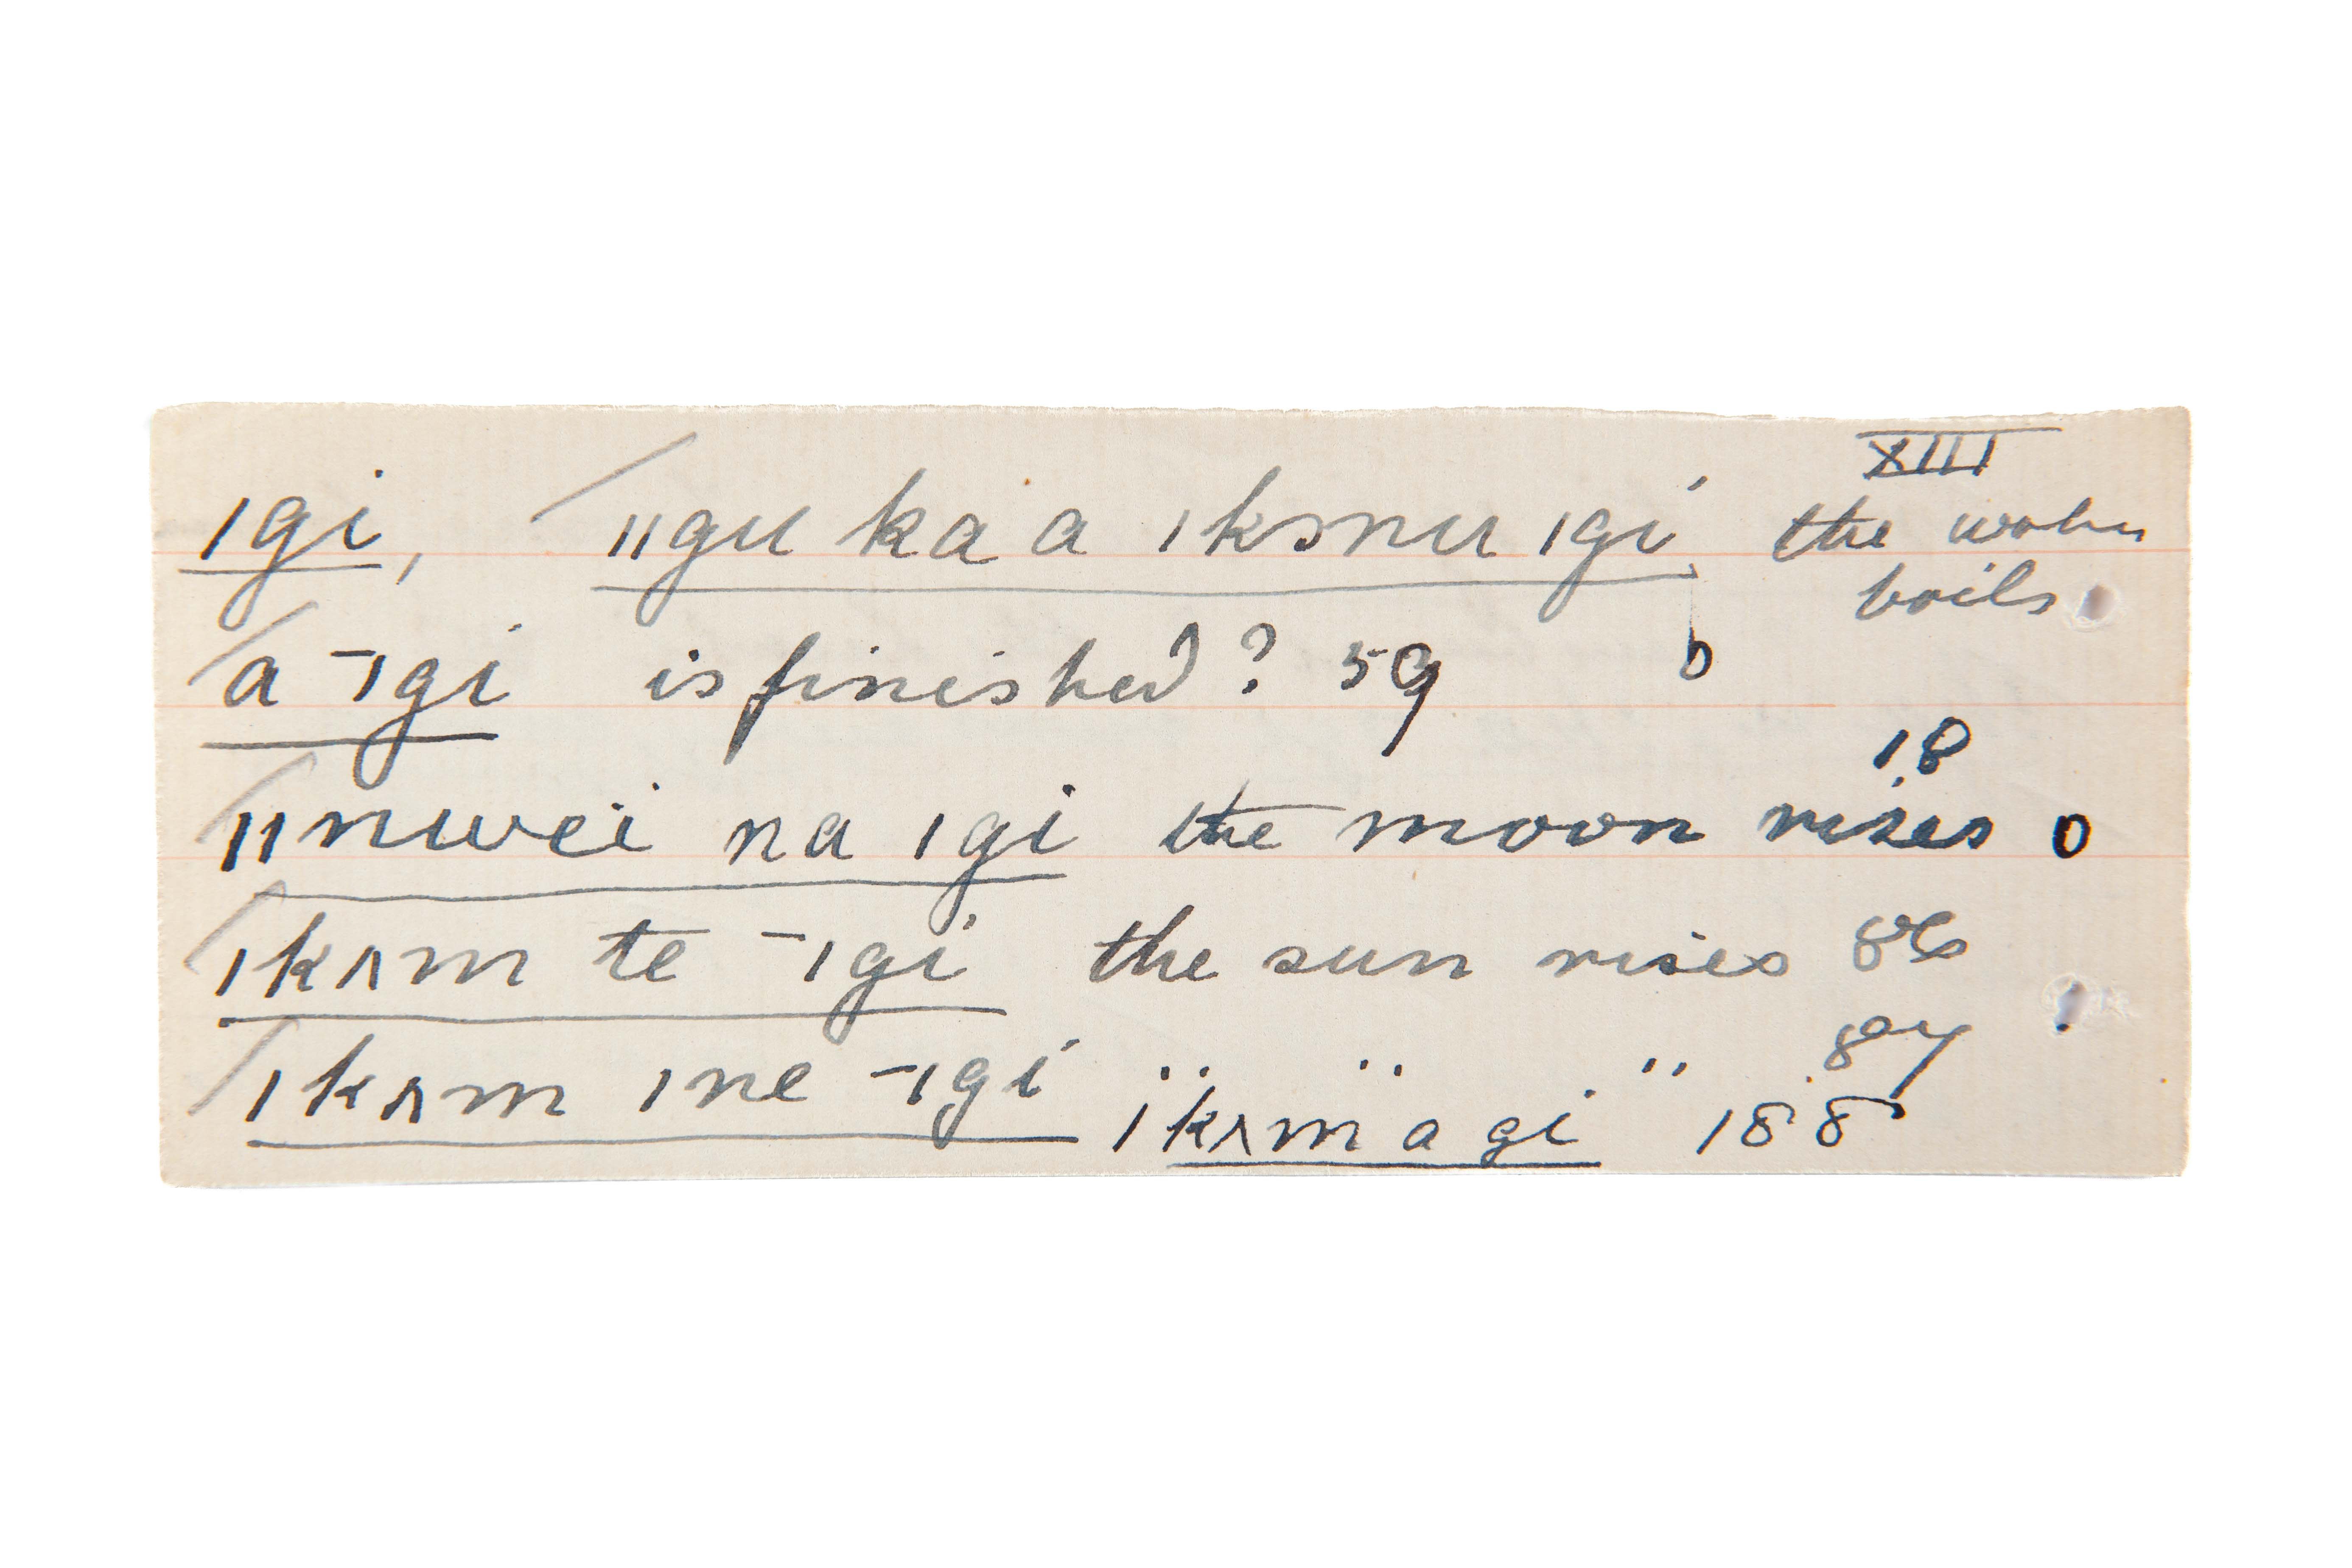 XIII
ǀgi, ǁgu ka a ǀkɔnu ǀgi the water
boils
a ¯ǀgi is finished? 59 b
18
ǁnwei na ǀgi the moon rises 0
ǀkʌm te ¯ǀgi the sun rises 86
87
ǀkʌm ǀne ¯ǀgi " " "
ǀkʌm a gi 188